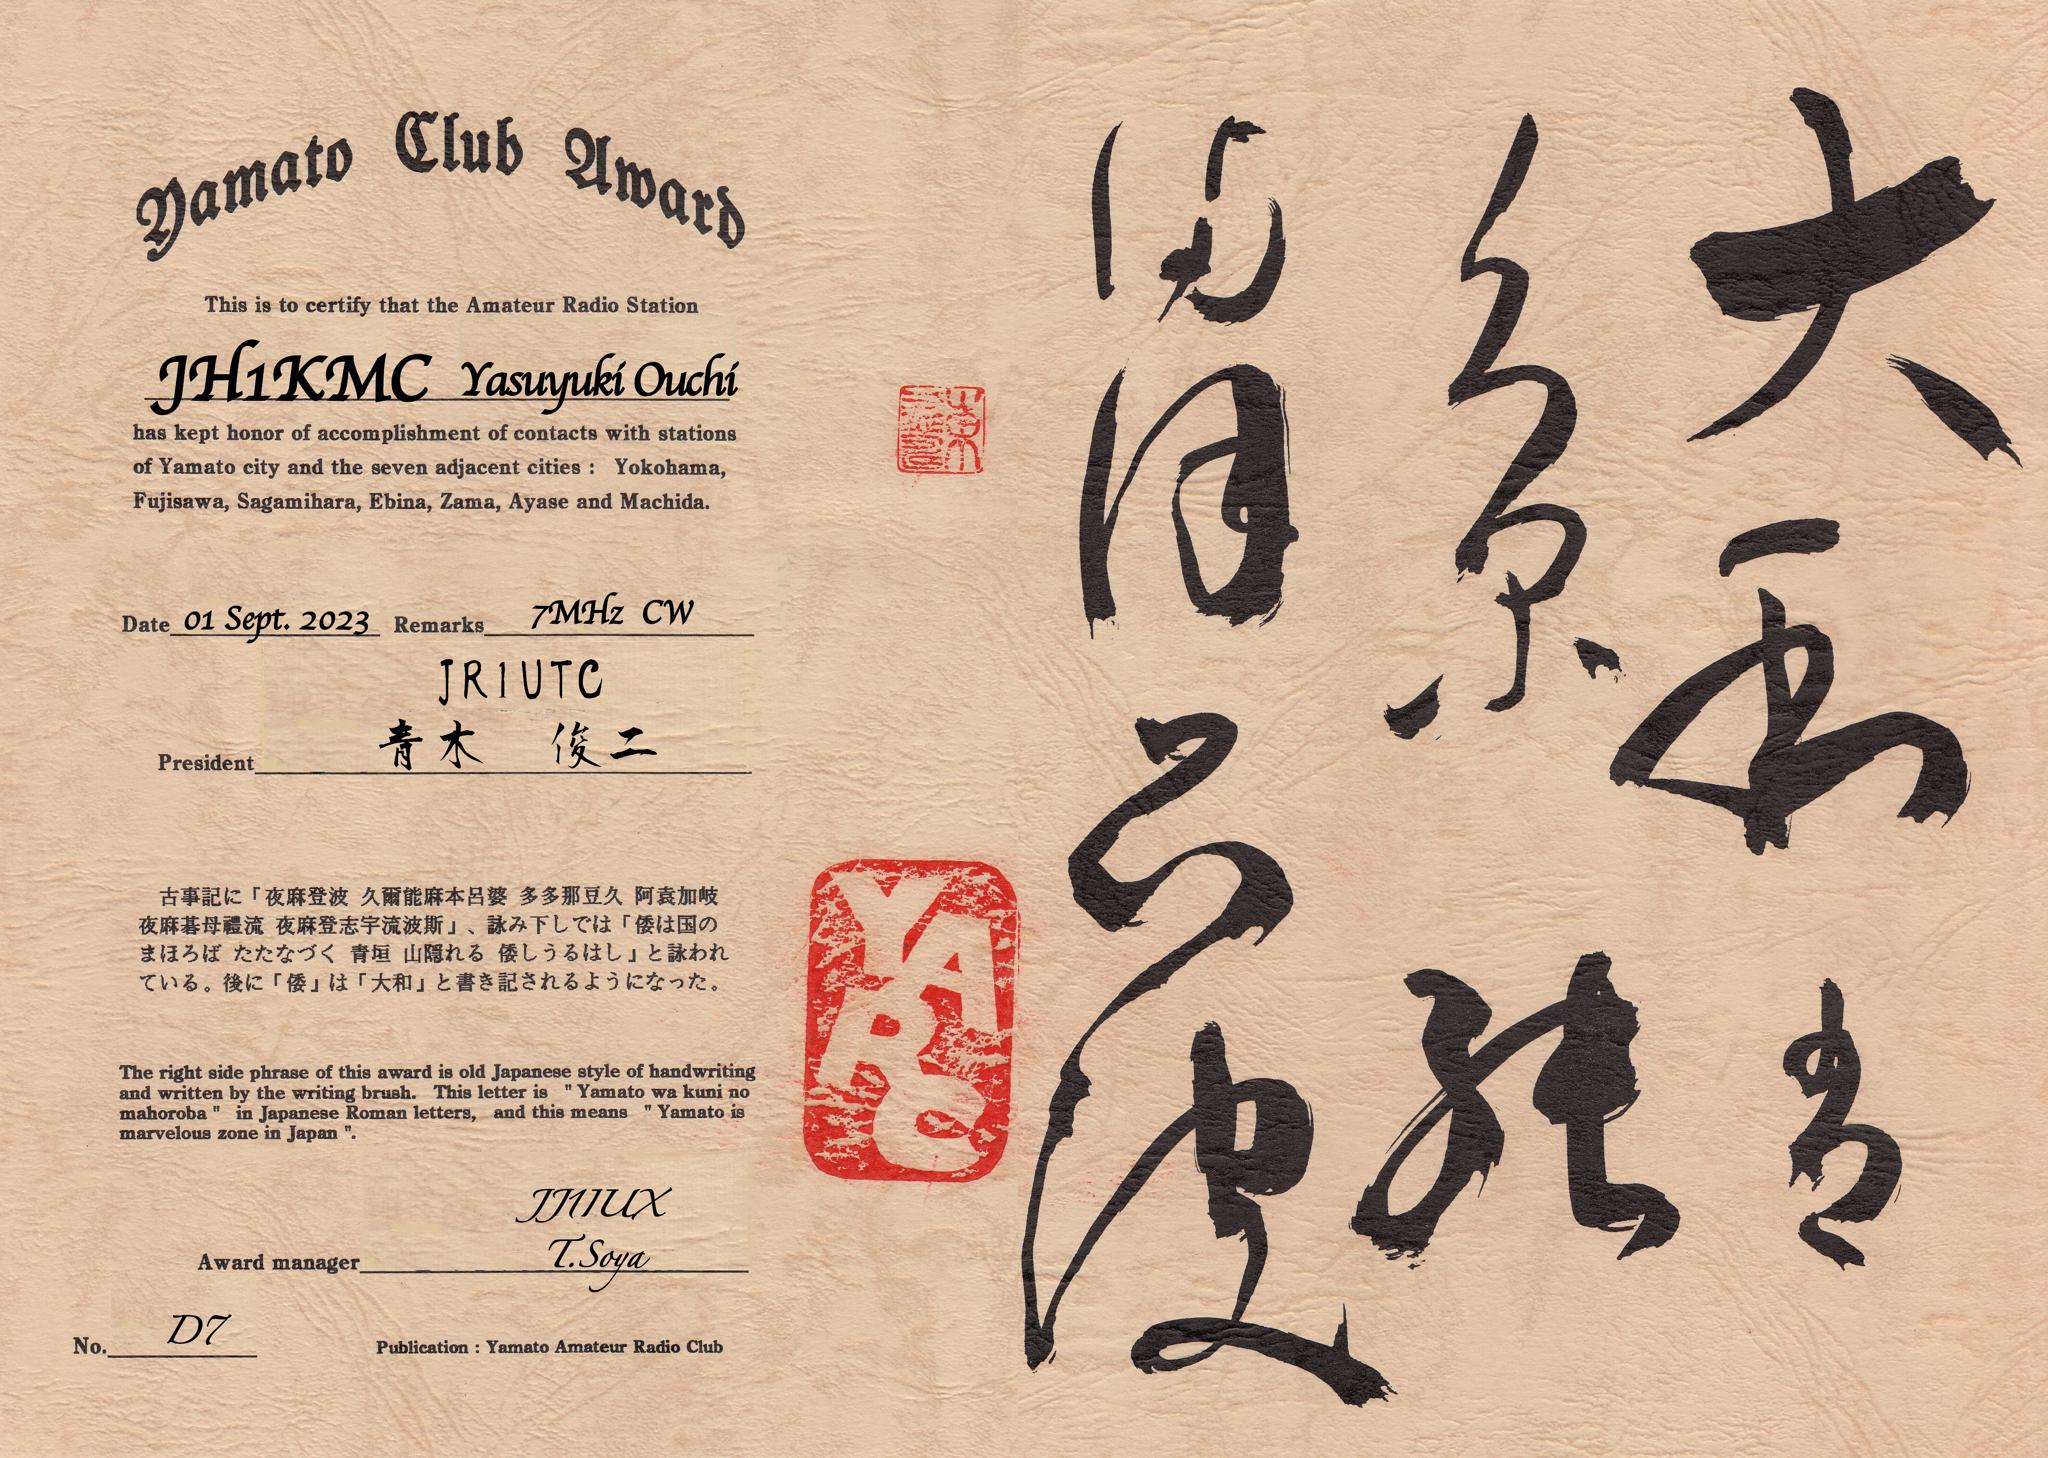 Yamato Club Award
This is to certify that the Amateur Radio Station
JH1KMC Yasuyuki Ouchi
has kept honor of accomplishment of contacts with stations
of Yamato city and the seven adjacent cities : Yokohama,
Fujisawa, Sagamihara, Ebina, Zama, Ayase and Machida.
Date 01 Sept. 2023 Remarks 7MHz CW
JR1UTC
President 青木 俊二
古事記に「夜麻登波 久爾能麻本呂婆 多多那豆久 阿袁加岐
夜麻碁母禮流 夜麻登志宇流波斯」、詠み下しでは「倭は国の
まほろば たたなづく 青垣 山隠れる 倭しうるはし」と詠われ
ている。後に「倭」は「大和」と書き記されるようになった。
The right side phrase of this award is old Japanese style of handwriting
and written by the writing brush. This letter is " Yamato wa kuni no
mahoroba " in Japanese Roman letters, and this means " Yamato is
marvelous zone in Japan ".
JJ1IUX
Award manager T.Soya
No. D7 Publication : Yamato Amateur Radio Club
YARC
大和